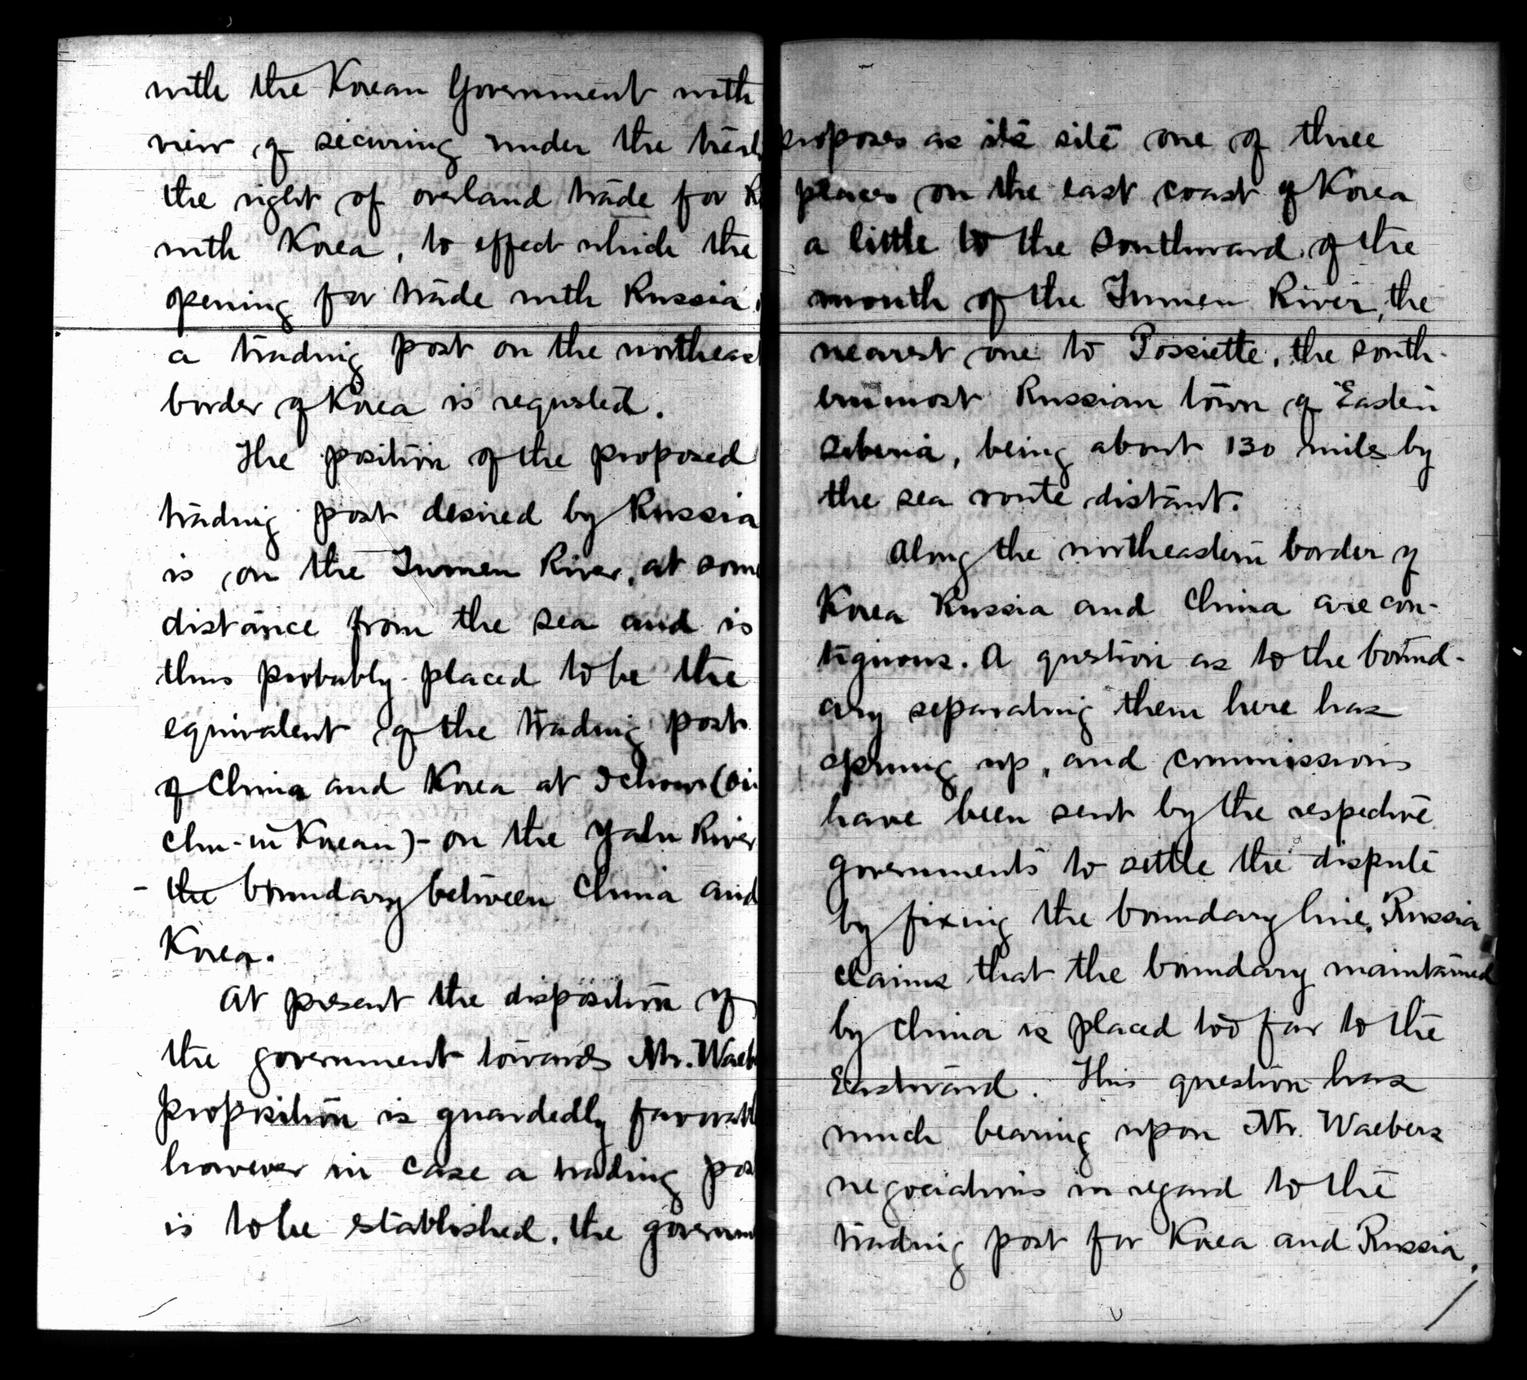 with the Korean Government with
view of securing under the treat
the right of overland trade for R
with Korea, to effect which the
opening for trade with Russia,
a trading post on the northeast
border of Korea is requsted.
The position of the proposed
trading post desired by Russia
is on the Tumen River, at some
distance from the sea and is
thus probably placed to be the
equivalent of the trading post
of China and Korea at Ichow (Oui
chu-in Korean) - on the Yalu River
- the boundary between China and
Korea.
At present the disposition of
the government towards Mr. Waeb
proposition is guardedly favorabl
however in case a trading pos
is to be established, the governm
proposes as its site one of three
places on the east coast of Korea
a little to the Southward of the
mouth of the Tumen River, the
nearest one to Possiette, the south-
ernmost Russian town of Eastern
Siberia, being about 130 miles by
the sea route distant.
Along the northeastern border of
Korea Russia and China are con-
tiguous. A question as to the bound-
ary separating them here has
sprung up, and commissions
have been sent by the respective
governments to settle the dispute
by fixing the boundary line. Russia
claims that the boundary maintained
by China is placed too far to the
Eastward. This question has
much bearing upon Mr. Waebers
negociations in regard to the
trading post for Korea and Russia.